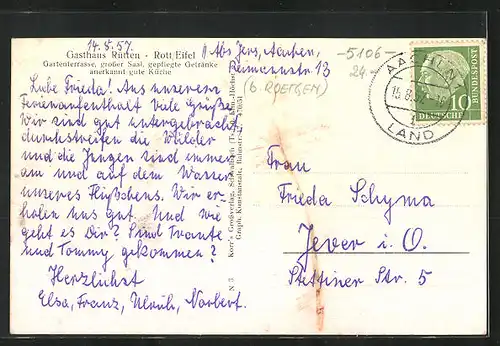 14.8.57.
Gasthaus Rütten - Rott/Eifel
Gartenterrasse, großer Saal, gepflegte Getränke
anerkannt gute Küche
Liebe Frieda! Aus unserem
Ferienaufenthalt viele Grüße.
Wir sind gut untergebracht,
durchstreifen die Wälder
und die Jungen sind immer
am und auf dem Wasser
unseres Flüßchens. Wir er-
holen uns gut. Und wie
geht es Dir? Sind Traute
und Tommy gekommen?
Herzlichst
Elsa, Franz, Ulrich, Norbert.
Abs. Jers, Aachen,
Reimannstr. 13
(b. ROETGEN)
-5106-
24.-
AACHEN
LAND
10
DEUTSCHE
BUNDESPOST
Korr's Großverlag,
N 3
Frau
Frieda Schyma
Jever i. O.
Stettiner Str. 5